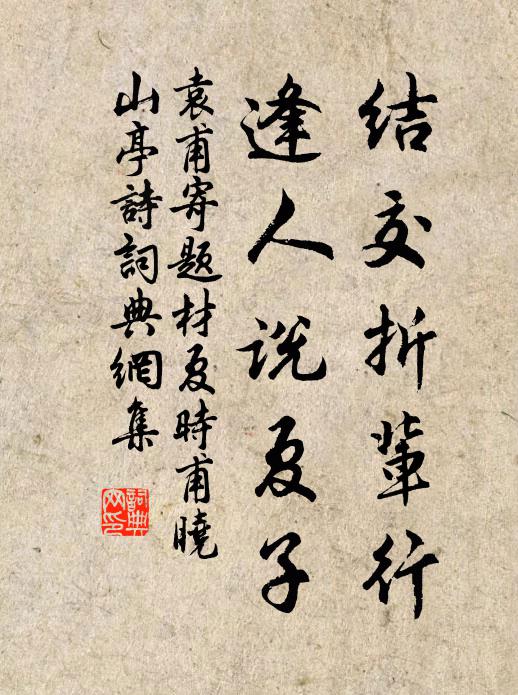 结交折辈行
逢人说夏子
袁甫寄题材夏時甫曉
山亭詩詞典網集
詞典网印